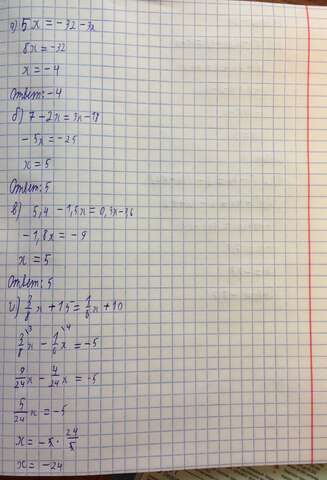 а) 5x = -32 - 3x
8x = -32
x = -4
Ответ: -4
б) 7 - 2x = 3x - 18
-5x = -25
x = 5
Ответ: 5
в) 5,4 - 1,5x = 0,3x - 3,6
-1,8x = -9
x = 5
Ответ: 5
г) 3/8 x + 15 = 1/6 x + 10
3/8 \3 x - 1/6 \4 x = -5
9/24 x - 4/24 x = -5
5/24 x = -5
x = -5 · 24/5
x = -24